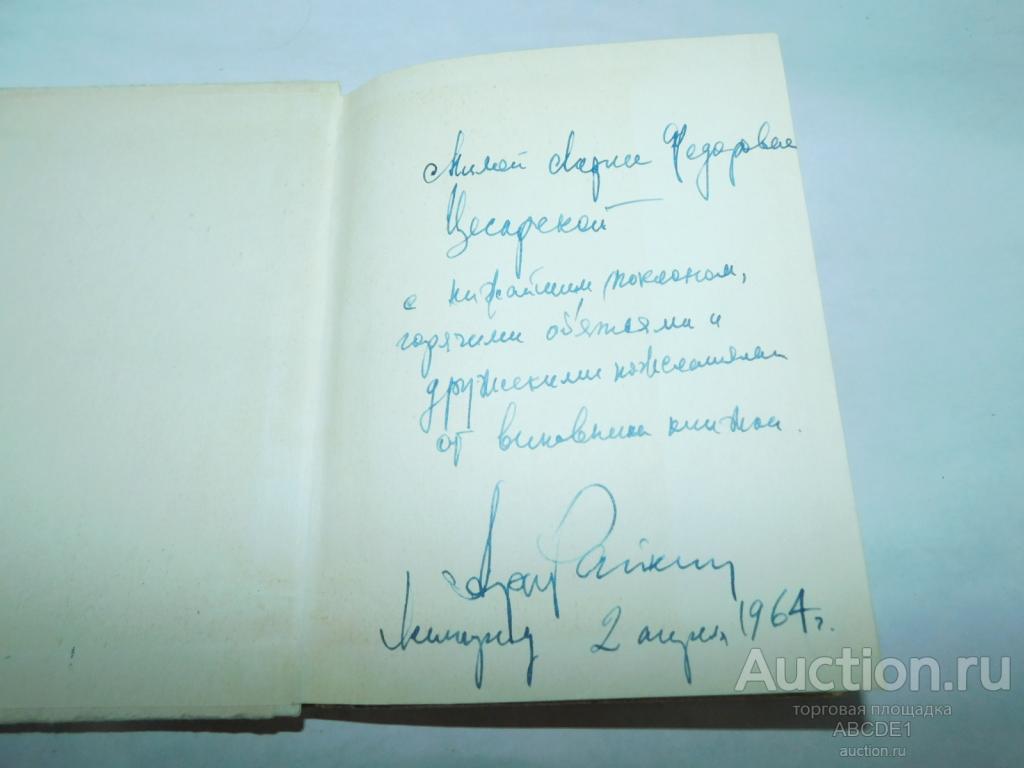 Милой Федоровне
Цесарской
с нижайшим поклоном,
горячими об'ятьями и
дружескими пожеланиями
от виновника книжки.
Райкин
Ленинград 2 апреля 1964 г.
Auction.ru
торговая площадка
ABCDE1
auction.ru